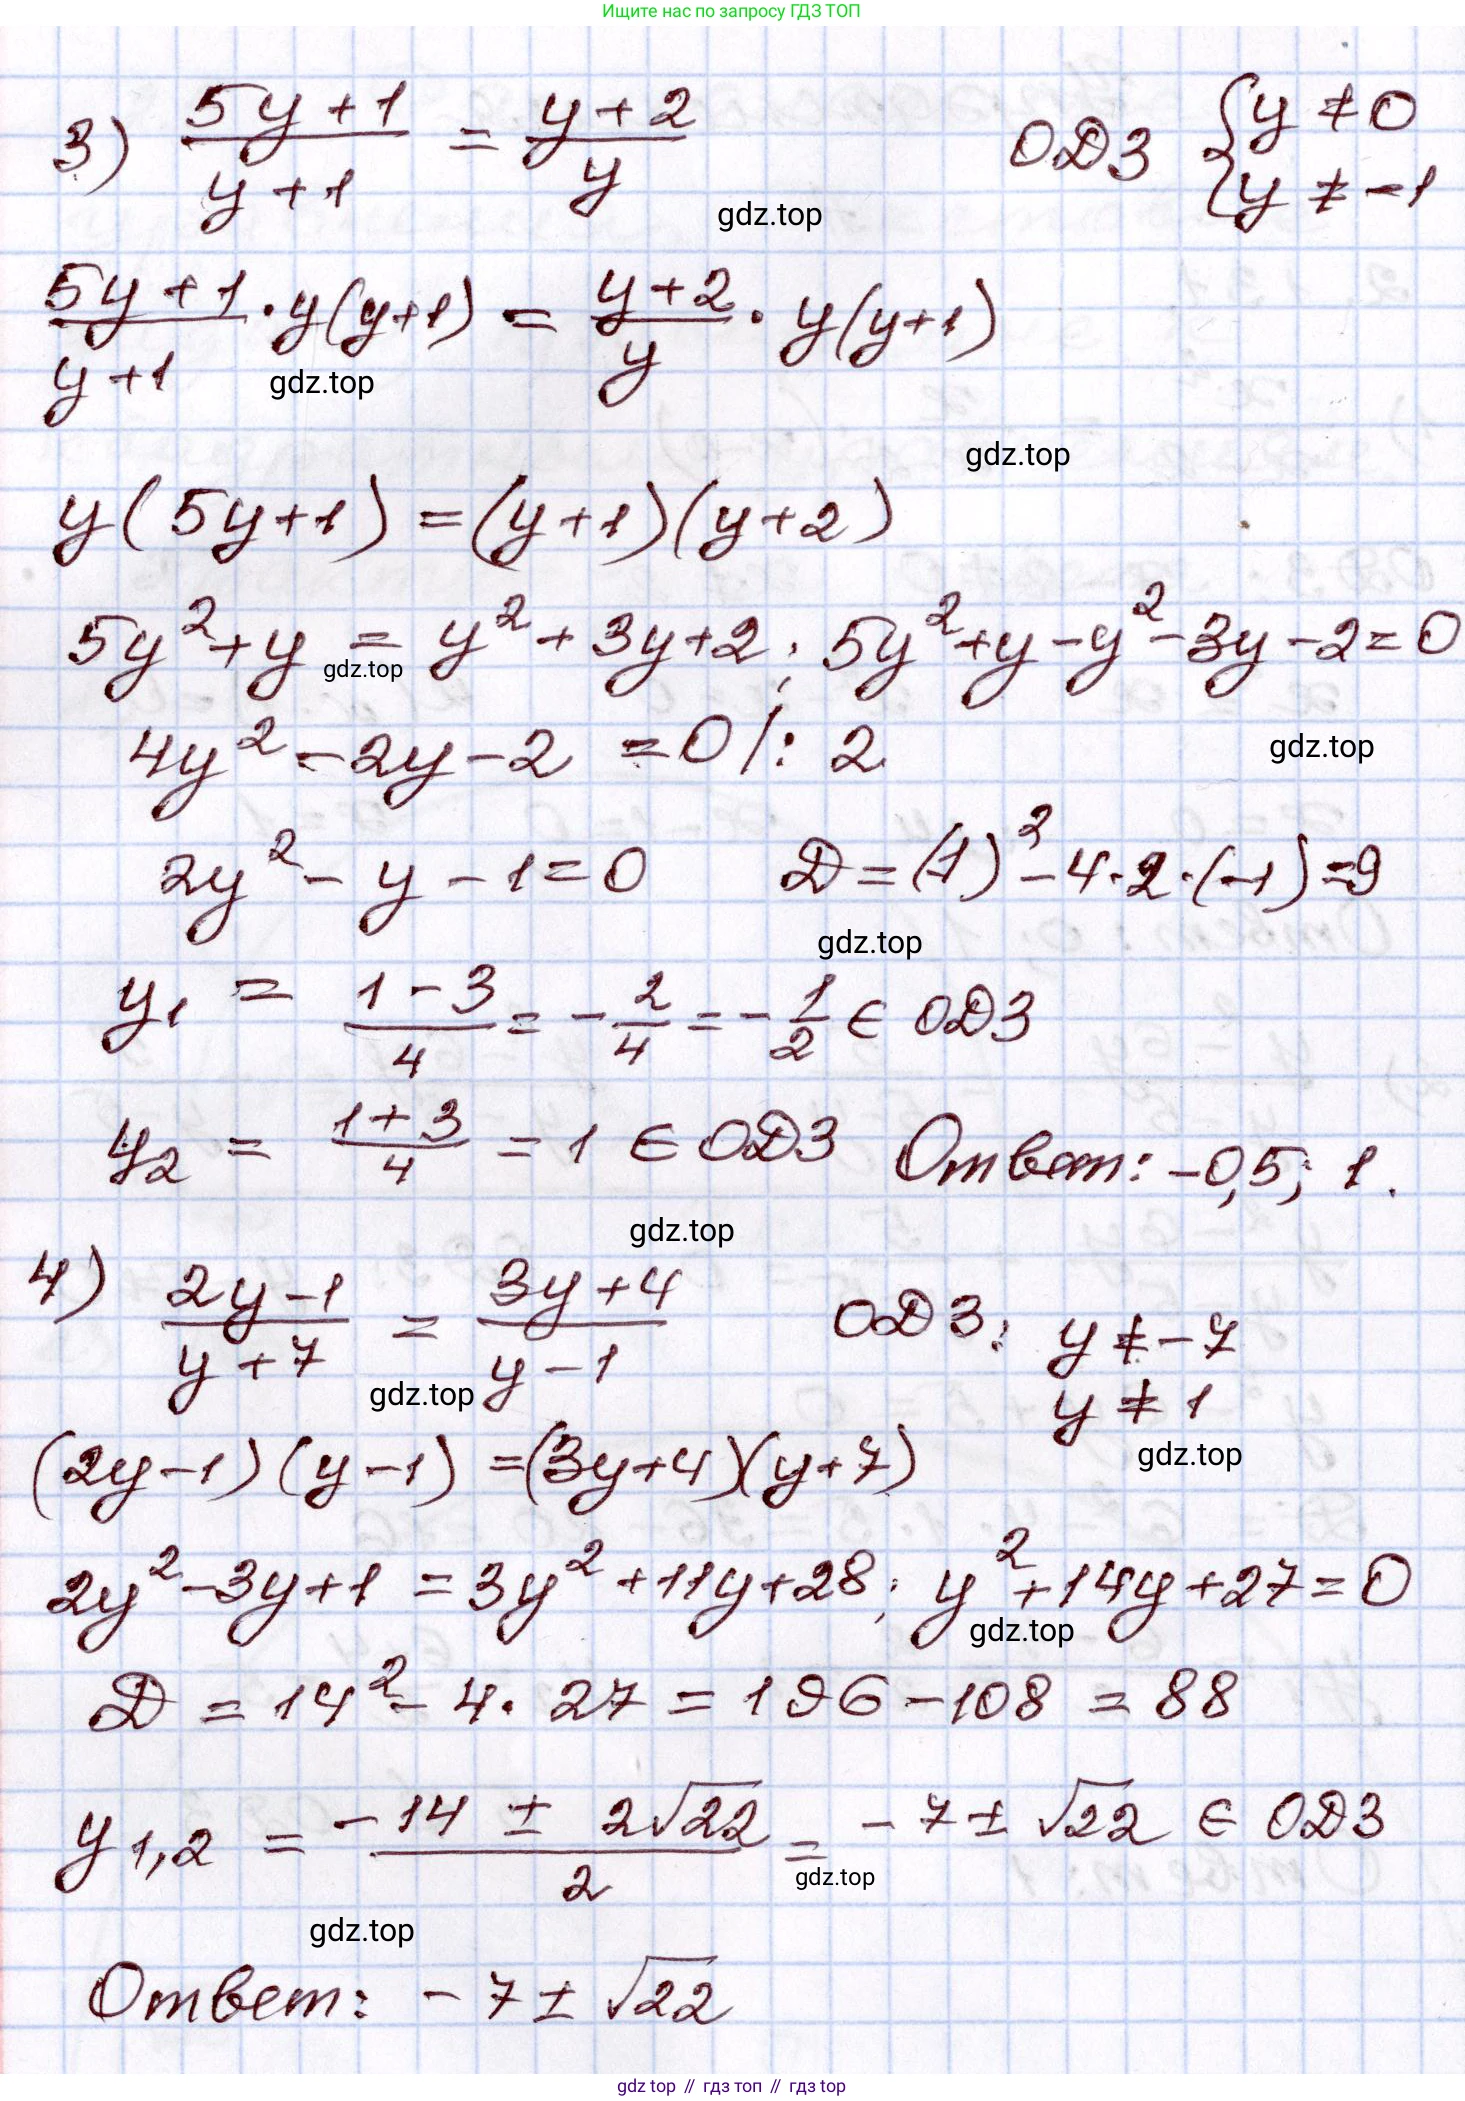 Ищите нас по запросу ГДЗ ТОП
3) (5y+1)/(y+1) = (y+2)/y ОДЗ { y ≠ 0
y ≠ -1
gdz.top
(5y+1)/(y+1) · y(y+1) = (y+2)/y · y(y+1)
gdz.top
gdz.top
y(5y+1) = (y+1)(y+2)
5y² + y = y² + 3y + 2; 5y² + y - y² - 3y - 2 = 0
gdz.top
4y² - 2y - 2 = 0 |: 2
gdz.top
2y² - y - 1 = 0 D = (-1)² - 4·2·(-1) = 9
gdz.top
y₁ = (1-3)/4 = -2/4 = -1/2 ∈ ОДЗ
y₂ = (1+3)/4 = 1 ∈ ОДЗ Ответ: -0,5; 1.
gdz.top
4) (2y-1)/(y+7) = (3y+4)/(y-1) ОДЗ: y ≠ -7
y ≠ 1
gdz.top
gdz.top
(2y-1)(y-1) = (3y+4)(y+7)
2y² - 3y + 1 = 3y² + 11y + 28; y² + 14y + 27 = 0
gdz.top
D = 14² - 4·27 = 196 - 108 = 88
y₁,₂ = (-14 ± 2√22)/2 = -7 ± √22 ∈ ОДЗ
gdz.top
gdz.top
Ответ: -7 ± √22
gdz top // гдз топ // гдз top